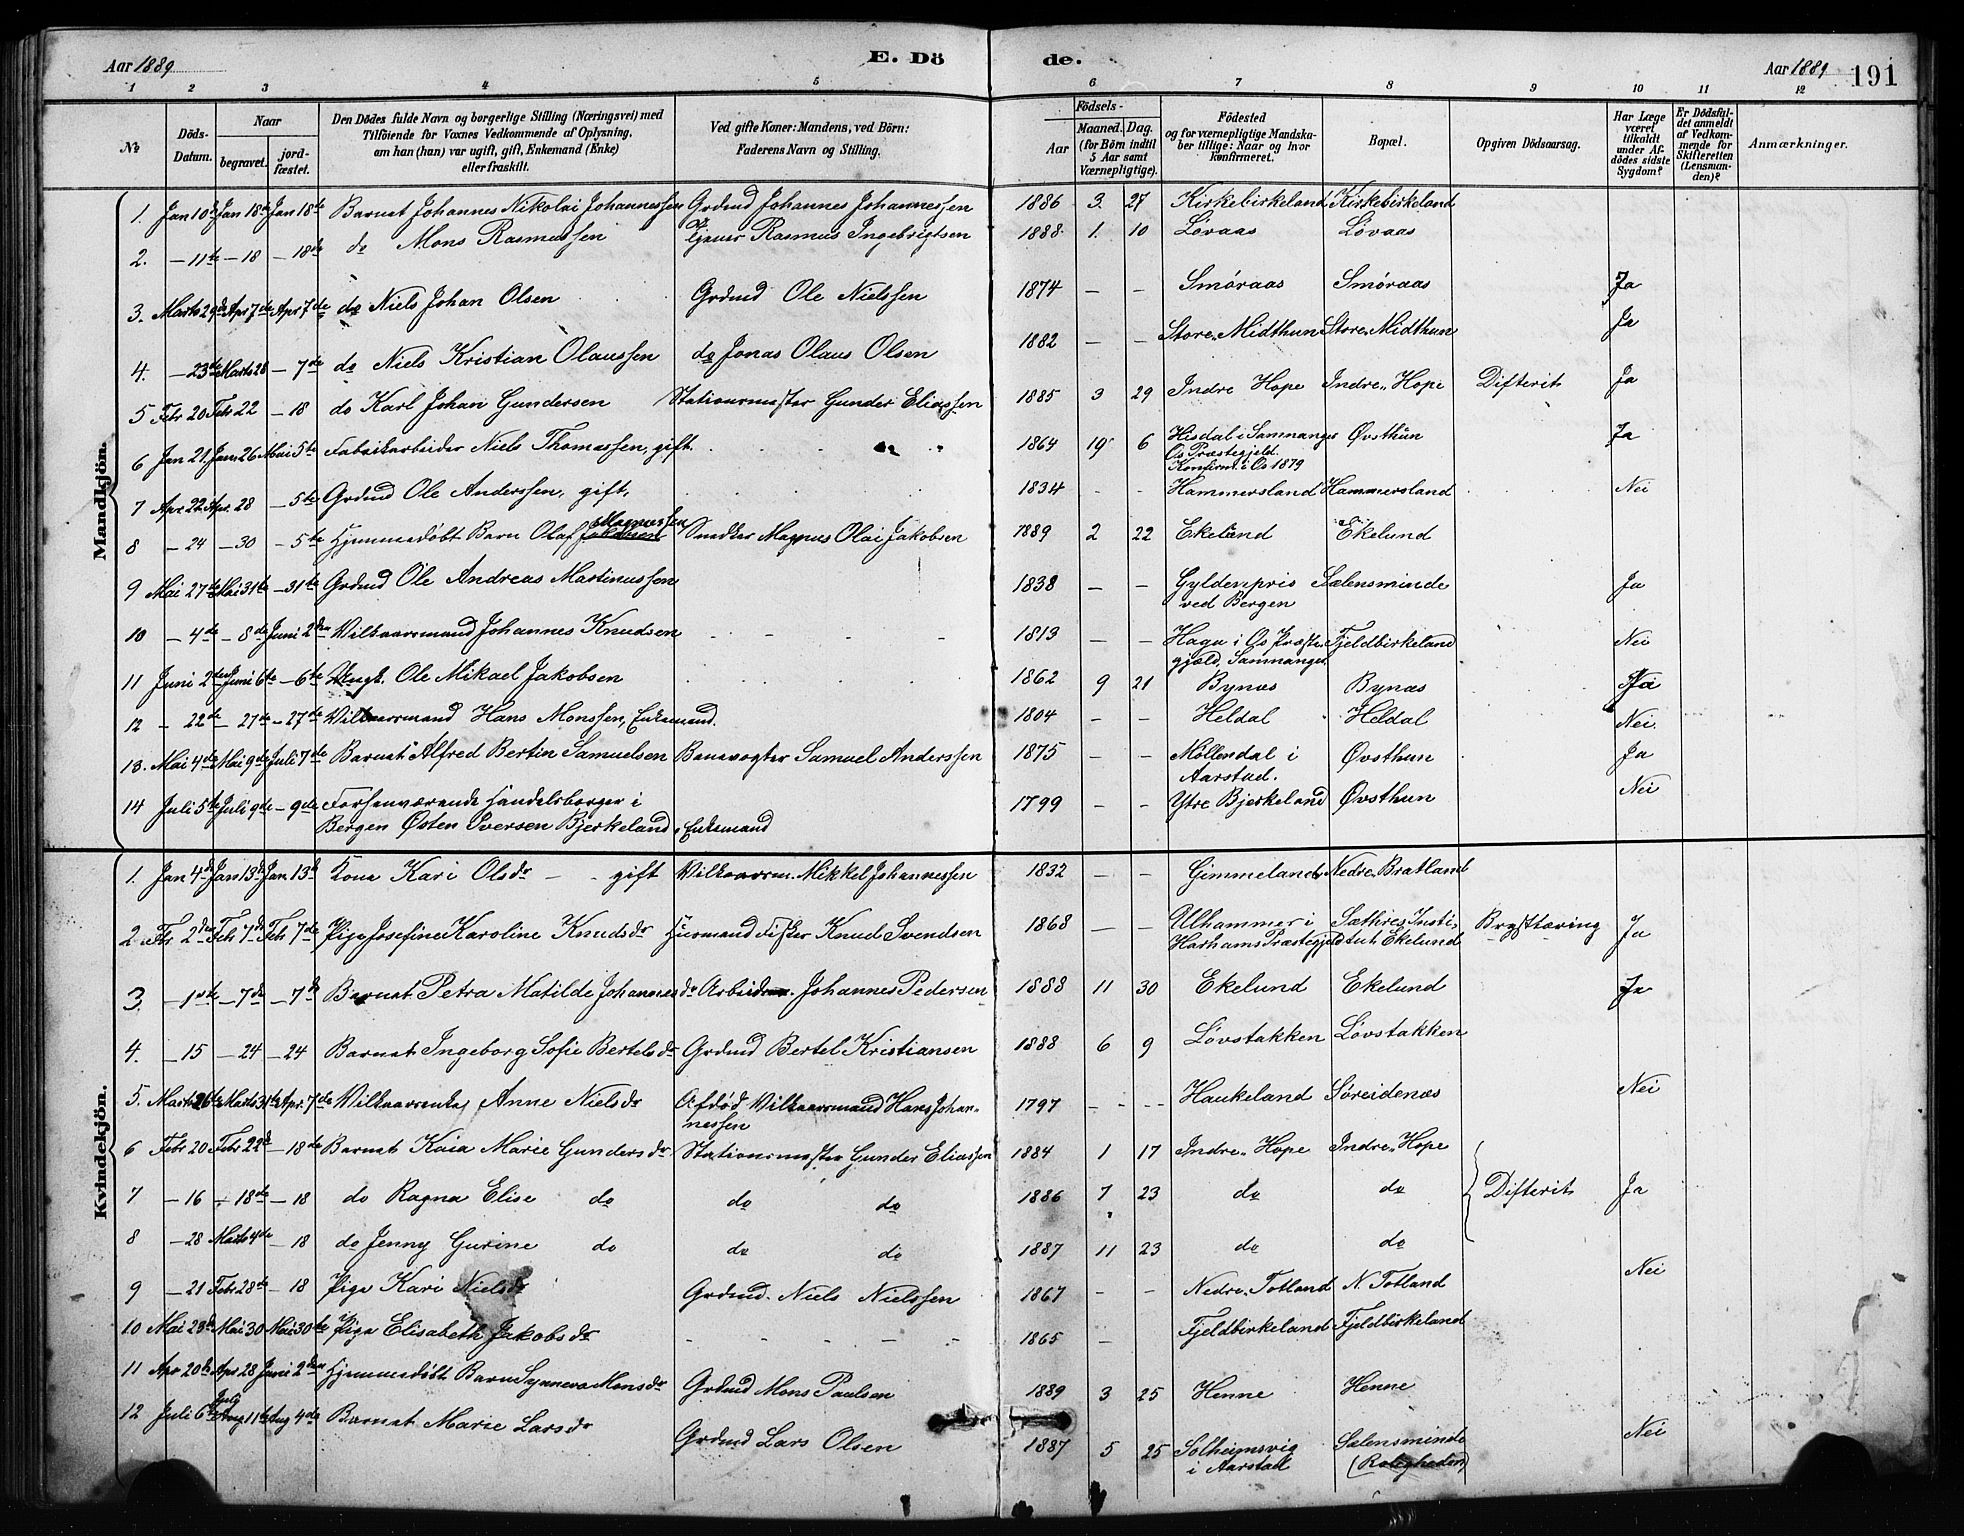 Aar 1889
E. Dö
de.
Aar 1889 191
1 2 3 4 5 6 7 8 9 10 11 12
№
Döds-
Datum.
Naar
begravet.
jord-
fæstet.
Den Dödes fulde Navn og borgerlige Stilling (Næringsvei) med
Tilföiende for Voxnes Vedkommende af Oplysning,
om han (hun) var ugift, gift, Enkemand (Enke)
eller fraskilt.
Ved gifte Koner: Mandens, ved Börn:
Faderens Navn og Stilling.
Födsels-
Aar
Maaned. Dag.
(for Börn indtil
5 Aar samt
Værnepligtige).
Födested
og for værnepligtige Mandska-
ber tillige: Naar og hvor
konfirmeret.
Bopæl.
Opgiven Dödsaarsag.
Har Læge
været
tilkaldt
under Af-
dödes sidste
Sygdom?
Er Dödsfal-
det anmeldt
af Vedkom-
mende for
Skifteretten
(Lensman-
den)?
Anmærkninger.
Mandkjön.
1. Jan 10de Jan 18de Jan 18de Barnat Johannes Nikolai Johannessen Grdmd Johannes Johannessen 1886 3. 27 Kirkebirkeland Kirkebirkeland
2. — 11te — 18 — 18de do Mons Rasmussen Rasmus Ingebrigtsen 1888 1. 10 Løvaas Løvaas
3. Marts 29de Apr 7de Apr 7de do Niels Johan Olsen Grdmd Ole Nielssen 1874 — — Smøraas Smøraas Ja
4. — 23de Marts 28 — 7de do Niels Kristian Olaussen do Jonas Olaus Olsen 1882 — — Store Midthun Store Midthun Ja
5 Febr 20 Febr 22 — 18 do Karl Johan Gundersen Stationsmester Gunder Eliassen 1885 3 29 Indre Hope Indre Hope Difterit Ja
6 Jan 21 Jan 26 Mai 5te Fabrikarbeider Niels Thomassen, gift. 1864 10 6 Hisdal i Samnanger
Os Præstegjeld.
Konfirm. i Os 1879 Øvsthun Ja
7 Apr. 22 Apr. 28 — 5te Grdmd Ole Anderssen, gift, 1834 - - Hammersland Hammersland Nei
8 — 24 — 30 — 5te Hjemmedøbt Barn Olaf Jakobsen Magnussen Snedker Magnus Olai Jakobsen 1889 2 22 Ekelund Ekelund
9 Mai 27de Mai 31te — 31te Grdmd Ole Andreas Martinussen 1838 — — Gyldenpris
ved Bergen Sælensminde Ja
10 — 4de — 8de Juni 2den Vilkaarsmand Johannes Knudsen 1813 — — Haga i Os Præste-
gjæld, Samnanger Fjeldbirkeland Nei
11 Juni 2den Juni 6te — 6te Ungk. Ole Mikael Jakobsen 1862 9 21 Bynæs Bynæs Ja
12 — 22de — 27de — 27de Vilkaarsmand Hans Monssen, Enkemand. 1804 — — Heldal Heldal Nei.
13. Mai 4de Mai 9de Juli 7de Barnat Alfred Bertin Samuelsen Banevogter Samuel Anderssen 1875 — — Møllendal i
Aarstad. Øvsthun Ja
14 Juli 5te Juli 9de — 9de Forhenværende Handelsborger i
Bergen Østen Iversen Bjerkeland, Enkemand 1799 — — Ytre Bjerkeland Øvsthun Nei
Kvindekjön.
1. Jan 4de Jan 13de Jan 13de Kone Kari Olsdr — - gift Vilkaarsm. Mikkel Johannessen 1832 — — Gimmeland Nedre Bratland
2 Febr 2den Febr 7de Febr 7de Pige Josefine Karoline Knudsdr Husmand Fisker Knud Svendsen 1868 — — Ulhammer i
Harhams Præstegjeld Sæthres Insti-
tut Ekelund Brysttæring Ja
3. — 1ste — 7de — 7de Barnat Petra Matilde Johannesdr Arbeider Johannes Pedersen 1888 11 30 Ekelund Ekelund Ja
4. — 15 — 24 — 24 Barnat Ingeborg Sofie Bertelsdr Grdmd Bertel Kristiansen 1888 6 9 Løvstakken Løvstakken
5. Marts 26de Marts 31te Apr. 7de Vilkaarsenke Anne Nielsdr Afdød Vilkaarsmand Hans Johan-
nessen 1797 — — Haukeland Søreidenæs Nei
6 Febr 20 Febr 22de — 18de Barnat Kaia Marie Gundersdr Stationsmester Gunder Eliassen 1884 1 17 Indre Hope Indre Hope
7 — 16 — 18de — 18 do Ragna Elise do do do 1886 7 23 do do Difterit Ja
8 — 28 Marts 4de — 18 do Jenny Gurine do do do 1887 11 23 do do
9 — 21 Febr 28de — 18 Pige Kari Nielsdr Grdmd. Niels Nielssen 1867 - - Nedre Totland N. Totland Nei
10 Mai 23de Mai 30 Mai 30te Pige Elisabeth Jakobsdr 1865 — Fjeldbirkeland Fjeldbirkeland
11 Apr 20de Apr 28 Juni 2den Hjemmedøbt Barn Synneva Monsdr Grdmd Mons Paulsen 1889 3 25 Henne Henne
12 Juli 6te Juli 11te Aug 4de Barnat Marie Larsdr Grdmd Lars Olsen 1887 5 25 Solheimsvig
i Aarstad Sælensminde
(Roligheden) Nei